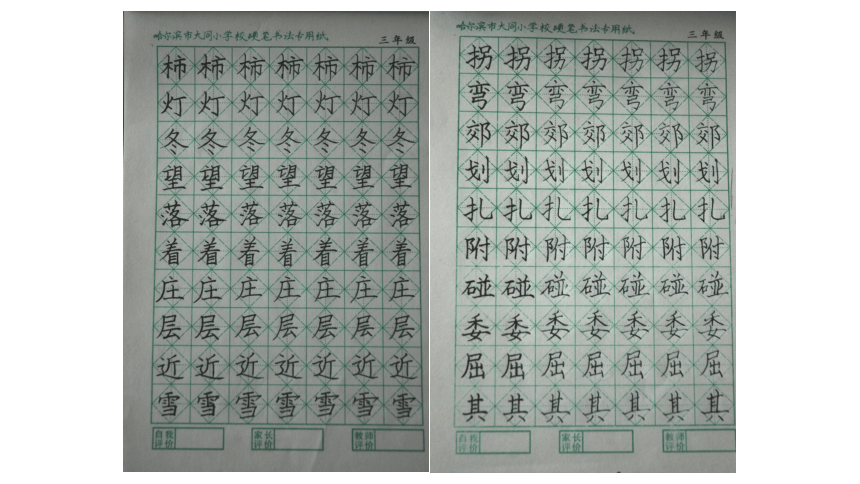 哈尔滨市大同小学校硬笔书法专用纸
三年级
柿柿柿柿柿柿柿
灯灯灯灯灯灯灯
冬冬冬冬冬冬冬
望望望望望望望
落落落落落落落
着着着着着着着
庄庄庄庄庄庄庄
层层层层层层层
近近近近近近近
雪雪雪雪雪雪雪
自我评价
家长评价
教师评价
哈尔滨市大同小学校硬笔书法专用纸
三年级
拐拐拐拐拐拐拐
弯弯弯弯弯弯弯
郊郊郊郊郊郊郊
划划划划划划划
扎扎扎扎扎扎扎
附附附附附附附
碰碰碰碰碰碰碰
委委委委委委委
屈屈屈屈屈屈屈
其其其其其其其
自我评价
家长评价
教师评价